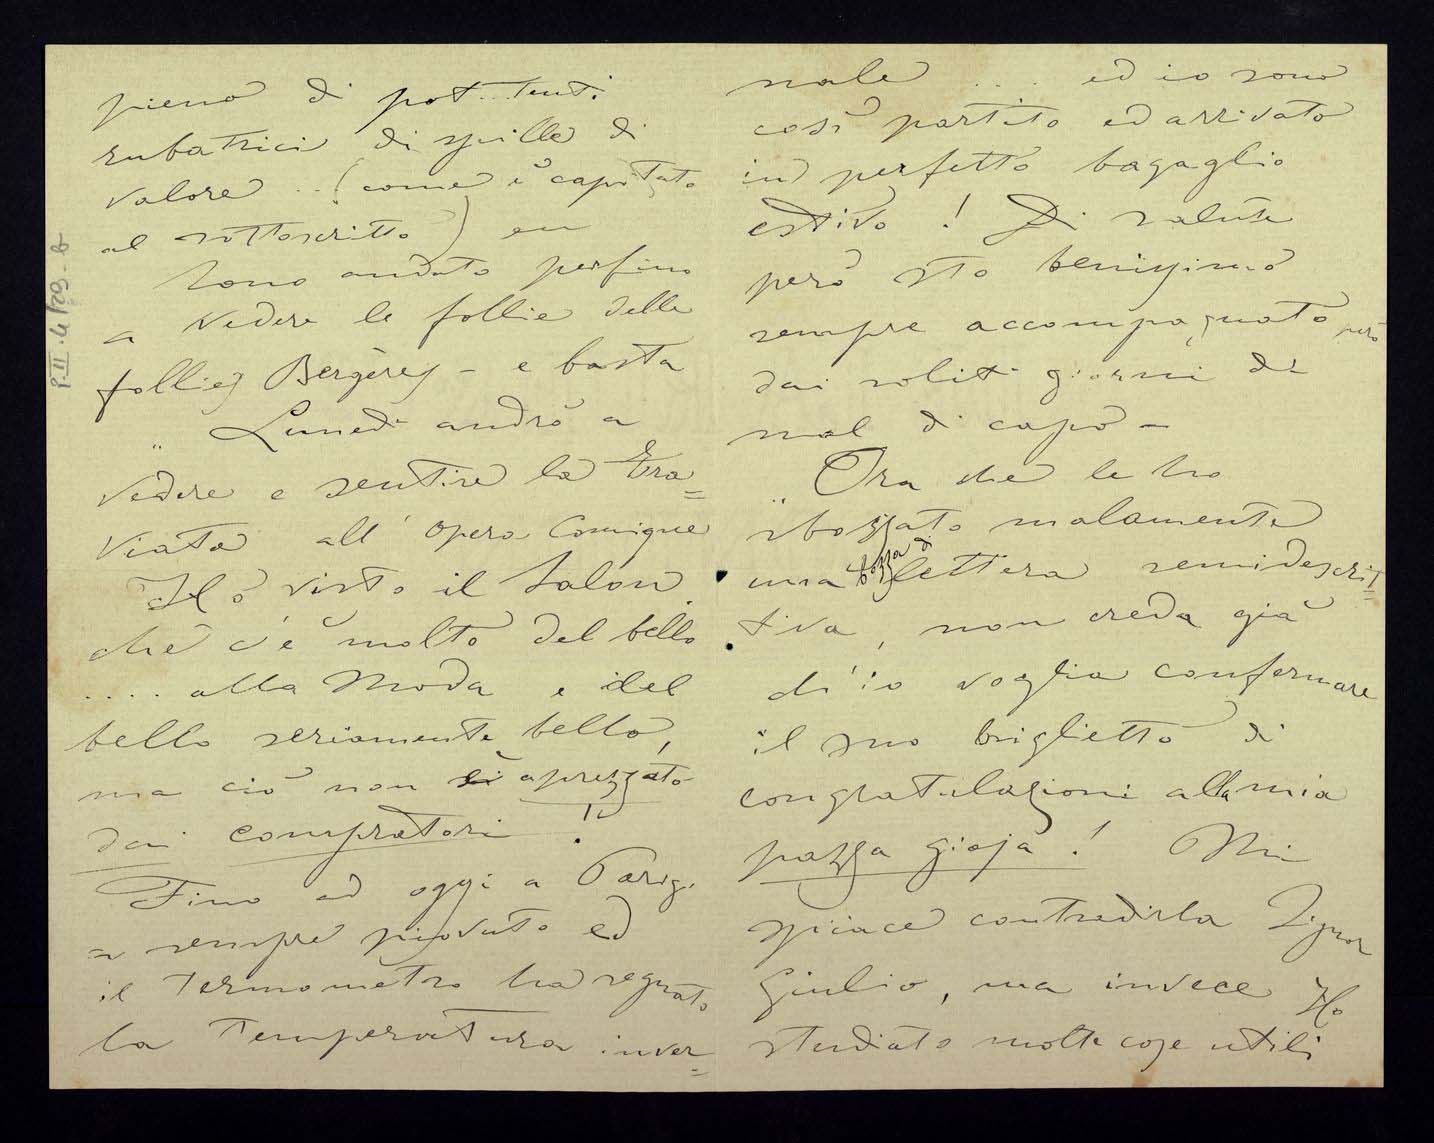 pieno di pot...tenti
rubatrici di spille di
valore ... (come è capitato
al sottoscritto) eu
Sono andato perfino
a vedere le follie delle
follies Bergères - e basta
Lunedì andrò a
vedere e sentire la Tra=
viata all' Opera Comique
Hò visto il Salon
chè c'è molto del bello
.... alla Moda e del
bello seriamente bello,
ma ciò non è aprezzato
dai compratori !!
Fino ad oggi a Parigi
a sempre piovuto ed
il termometro ha segnato
la temperatura inver=
nale ... ed io sono
così partito ed arrivato
in perfetto bagaglio
estivo ! Di salute
però sto benissimo
sempre accompagnato però
dai soliti giorni di
mal di capo -
Ora che le ho
sbozzato malamente
una bozza di lettera semidescrit=
tiva, non creda già
ch'io voglia confermare
il suo briglietto di
congratulazioni alla mia
pazza gioja ! Mi
spiace contradirla Signor
Giulio, ma invece Ho
studiato molte cose utili
P.II.4/129-b